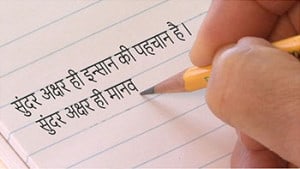 सुंदर अक्षर ही इन्सान की पहचान है।
सुंदर अक्षर ही मानव